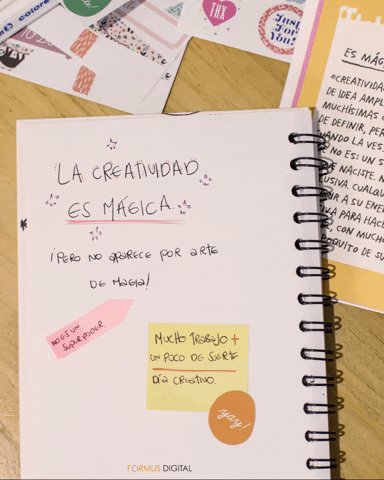 colore
THX
Just
For
You!
ES MÁG
«CREATIVIDA
DE IDEA AMPL
MUCHÍSIMAS
DE DEFINIR, PE
NO ES: UN S
NACISTE. N
LUSIVA. CUALQU
A SU ENE
PARA HAC
CON MUCH
POQUITO DE SU
LA CREATIVIDAD
ES MÁGICA.
¡PERO NO APARECE POR ARTE
DE MAGIA!
NO ES UN
SUPERPODER
MUCHO TRABAJO +
UN POCO DE SUERTE
DÍA CREATIVO.
yay!
FORMUS DIGITAL